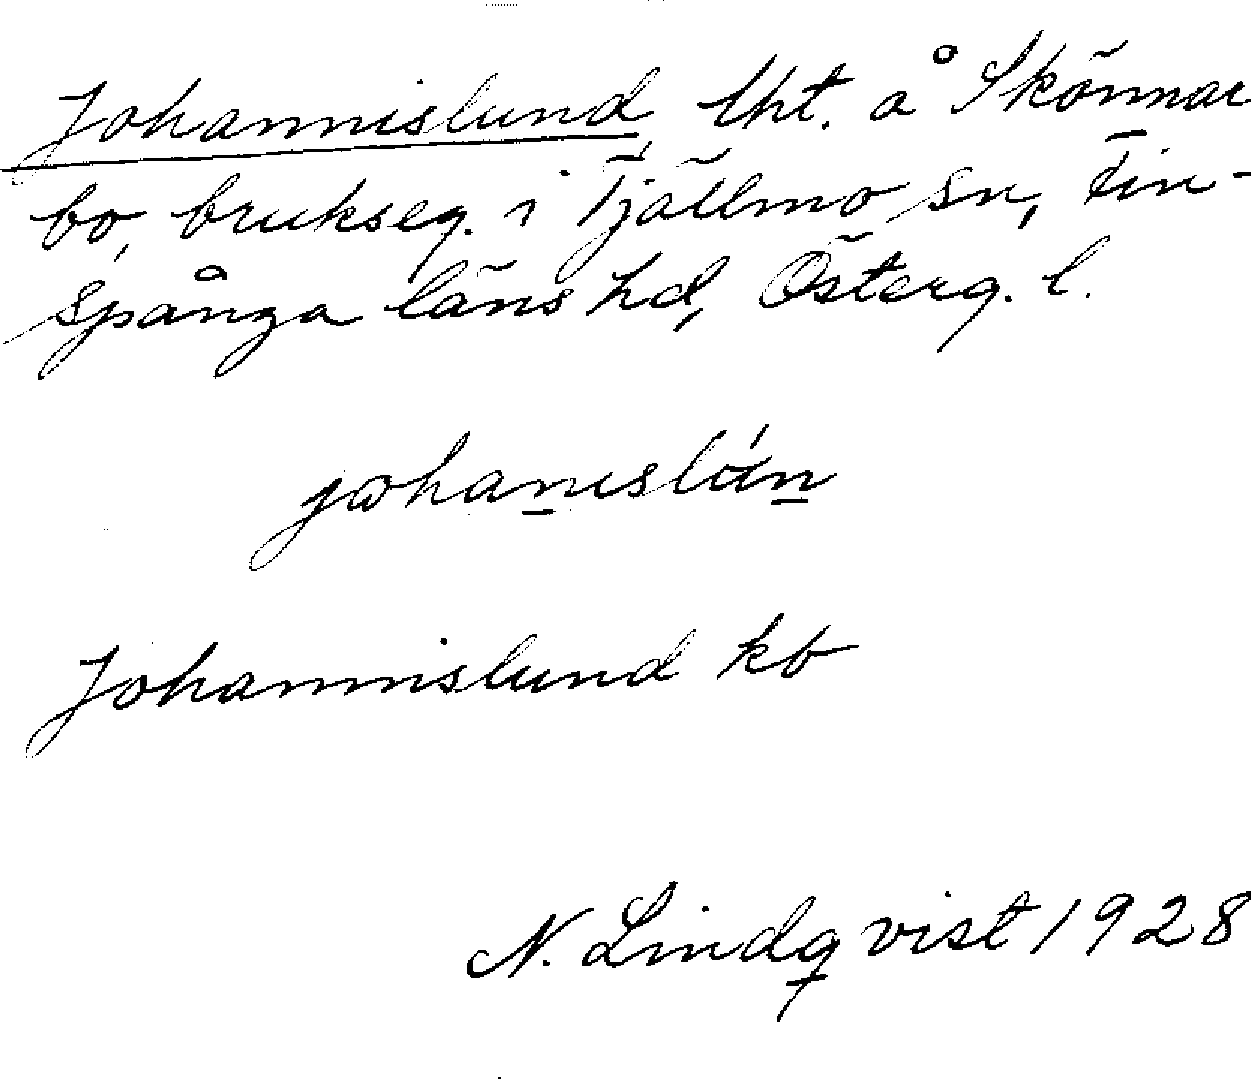 Johannislund, lht. å Skönnar
bo, brukseg. i Tjällmo sn, Fin-
spånga läns hd, Österg. l.
johanislún
Johannislund kb
N. Lindqvist 1928